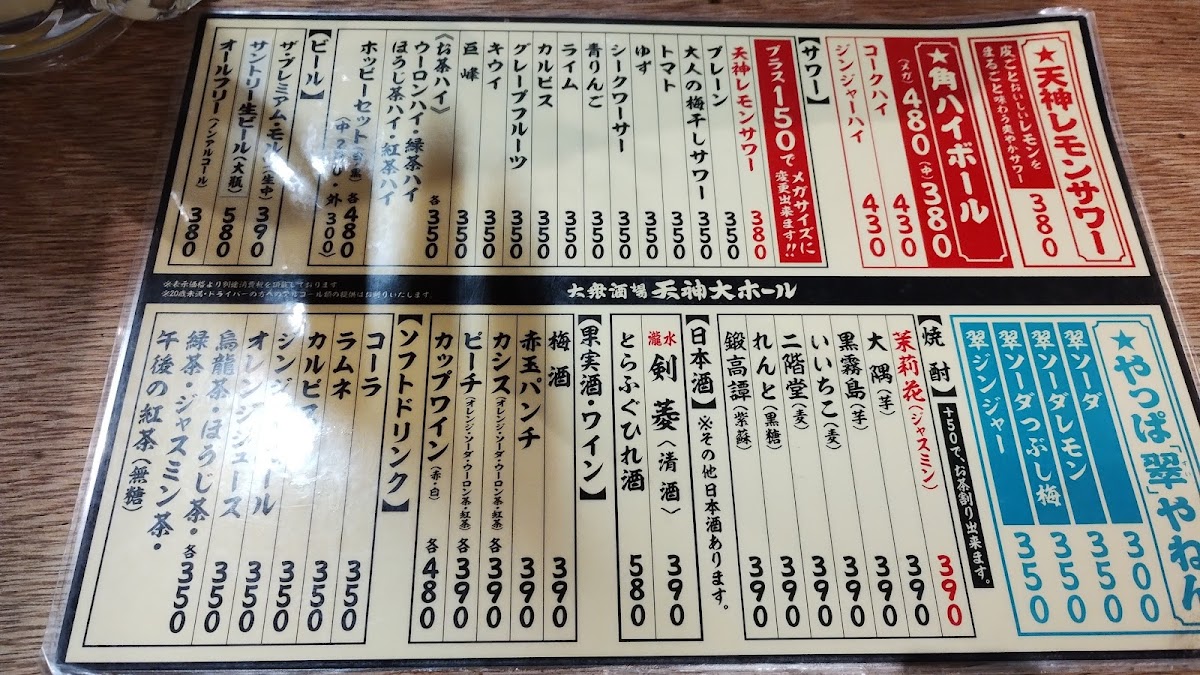 ★天神レモンサワー
皮ごとおいしいレモンを
まるごと味わう爽やかサワー
380
★角ハイボール
(メガ)480(中)380
コークハイ 430
ジンジャーハイ 430
【サワー】
プラス150でメガサイズに
変更出来ます!!
天神レモンサワー 380
プレーン 350
大人の梅干しサワー 350
トマト 350
ゆず 350
シークワーサー 350
青りんご 350
ライム 350
カルピス 350
グレープフルーツ 350
キウイ 350
巨峰 350
《お茶ハイ》
ウーロンハイ・緑茶ハイ
ほうじ茶ハイ・紅茶ハイ 各350
ホッピーセット 各480
外300)
【ビール】
ザ・プレミアム・モルツ(生中) 390
サントリー生ビール(大瓶) 580
オールフリー(ノンアルコール) 380
大衆酒場 天神大ホール
※表示価格より別途消費税を頂戴しております
※20歳未満・ドライバーの方へのアルコール類の提供はお断りいたします。
★やっぱ「翠」やねん
翠ソーダ 300
翠ソーダレモン 350
翠ソーダつぶし梅 350
翠ジンジャー 350
【焼酎】+50で、お茶割り出来ます。
茉莉花(ジャスミン) 390
大隅(芋) 390
黒霧島(芋) 390
いいちこ(麦) 390
二階堂(麦) 390
れんと(黒糖) 390
鍛高譚(紫蘇) 390
【日本酒】※その他日本酒あります。
瀧水 剣菱(清酒) 390
とらふぐひれ酒 580
【果実酒・ワイン】
梅酒 390
赤玉パンチ 390
カシス(オレンジ・ソーダ・ウーロン茶・紅茶) 各390
ピーチ(オレンジ・ソーダ・ウーロン茶・紅茶) 各390
カップワイン(赤・白) 各480
【ソフトドリンク】
コーラ 350
ラムネ 350
カルピス 350
ジンジャーエール 350
オレンジジュース 350
烏龍茶・ほうじ茶・
緑茶・ジャスミン茶・
午後の紅茶(無糖) 各350